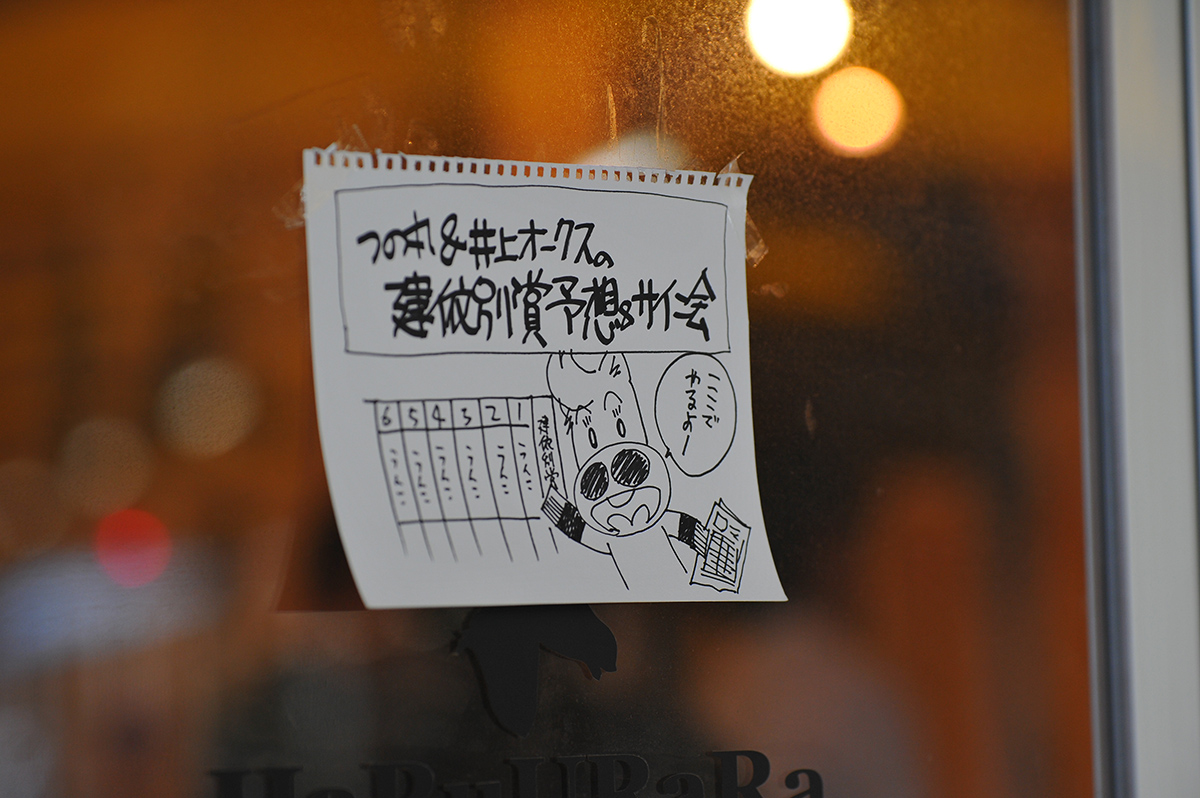 つの丸&井上オークスの
建依別賞予想&サイン会
ここで
やるよー
建依別賞
1 2 3 4 5 6
うんこ
うんこ
うんこ
うんこ
うんこ
うんこ
HaRuURaRa